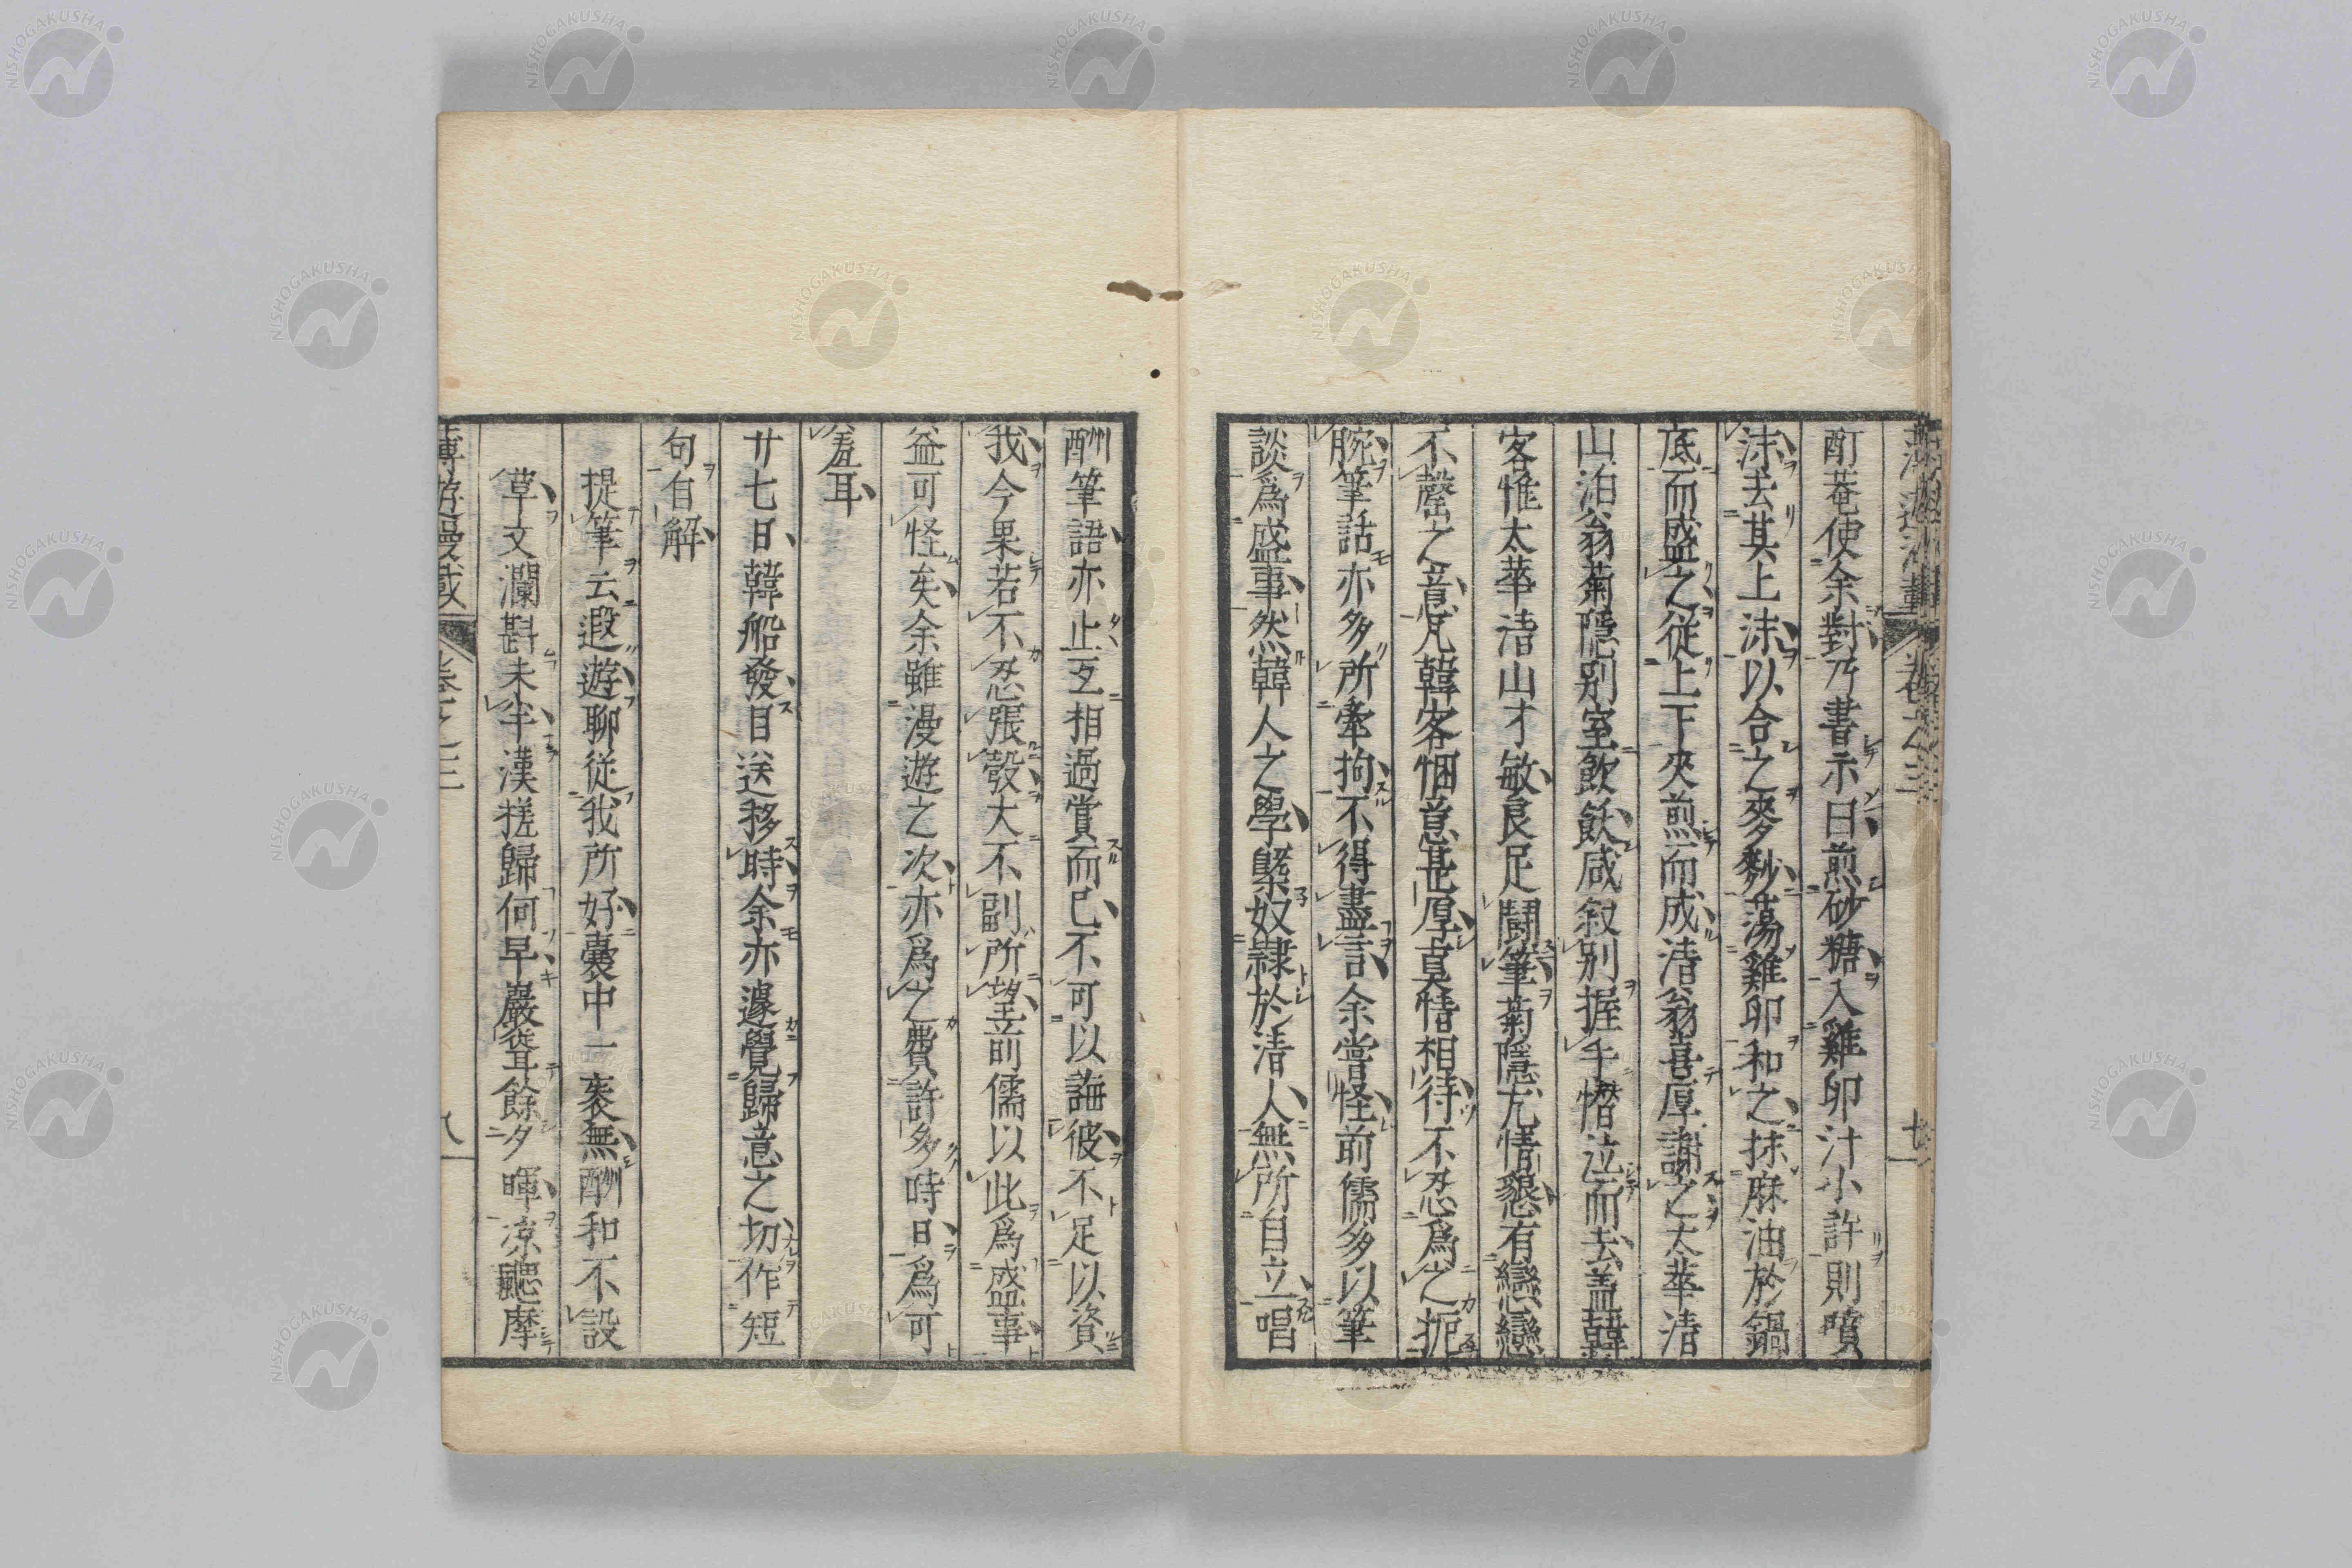 酊菴使余對乃書示曰煎砂糖入雞卵汁小許則噴
沫去其上沫以合之麥麨蕩雞卵和之抹麻油於鍋
底而盛之從上下夾煎而成清翁喜厚謝之太華清
山泊翁菊隱別室飲飲咸叙別握手憯泣而去盖韓
客惟太華清山才敏良足鬪筆菊隱尤情懇有戀戀
不罄之意凡韓客悃意甚厚真情相待不忍為之扼
腕筆話亦多所牽拘不得盡言余嘗怪前儒多以筆
談爲盛事然韓人之學槩奴隷於清人無所自立唱
酬筆語亦止互相過賞而已不可以誨彼不足以資
我今果若不忍張彀大不副所望前儒以此爲盛事
益可怪矣余雖漫遊之次亦爲之費許多時日爲可
羞耳
廿七日韓船發日送移時余亦遽覺歸意之切作短
句自解
提筆云遐遊聊從我所好嚢中一袠無酬和不設
草文瀾斟未半漢搓歸何早巖聳餘夕暉凉颸摩
卷之三
八